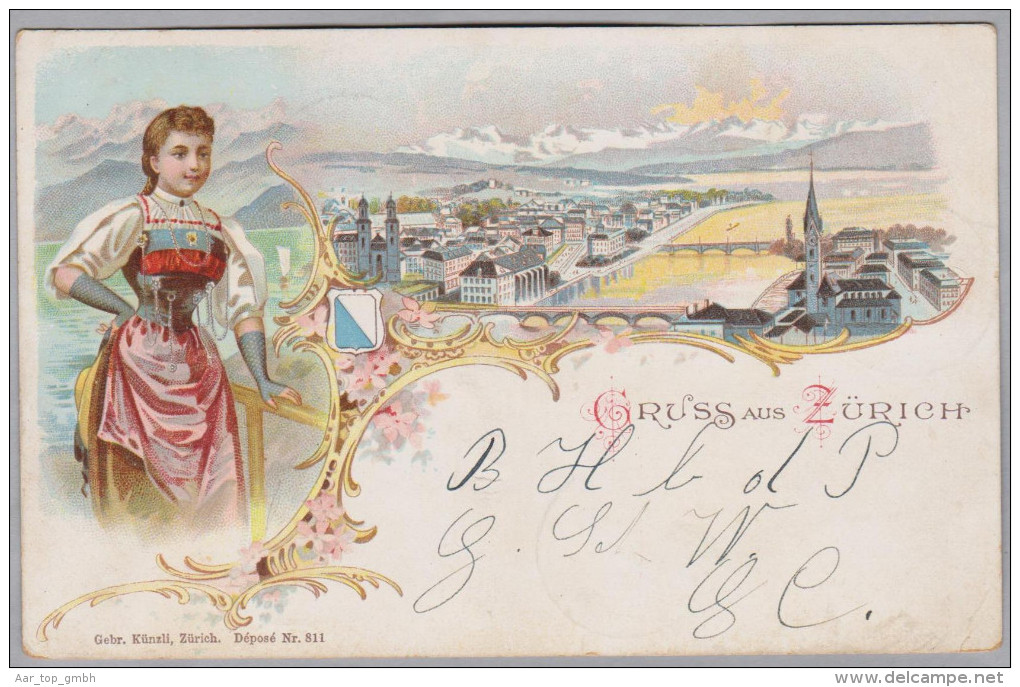 GRUSS AUS ZÜRICH
B H b d P
G. St W.
G C.
Gebr. Künzli, Zürich. Déposé Nr. 811
Aar_top_gmbh
delcampe.net